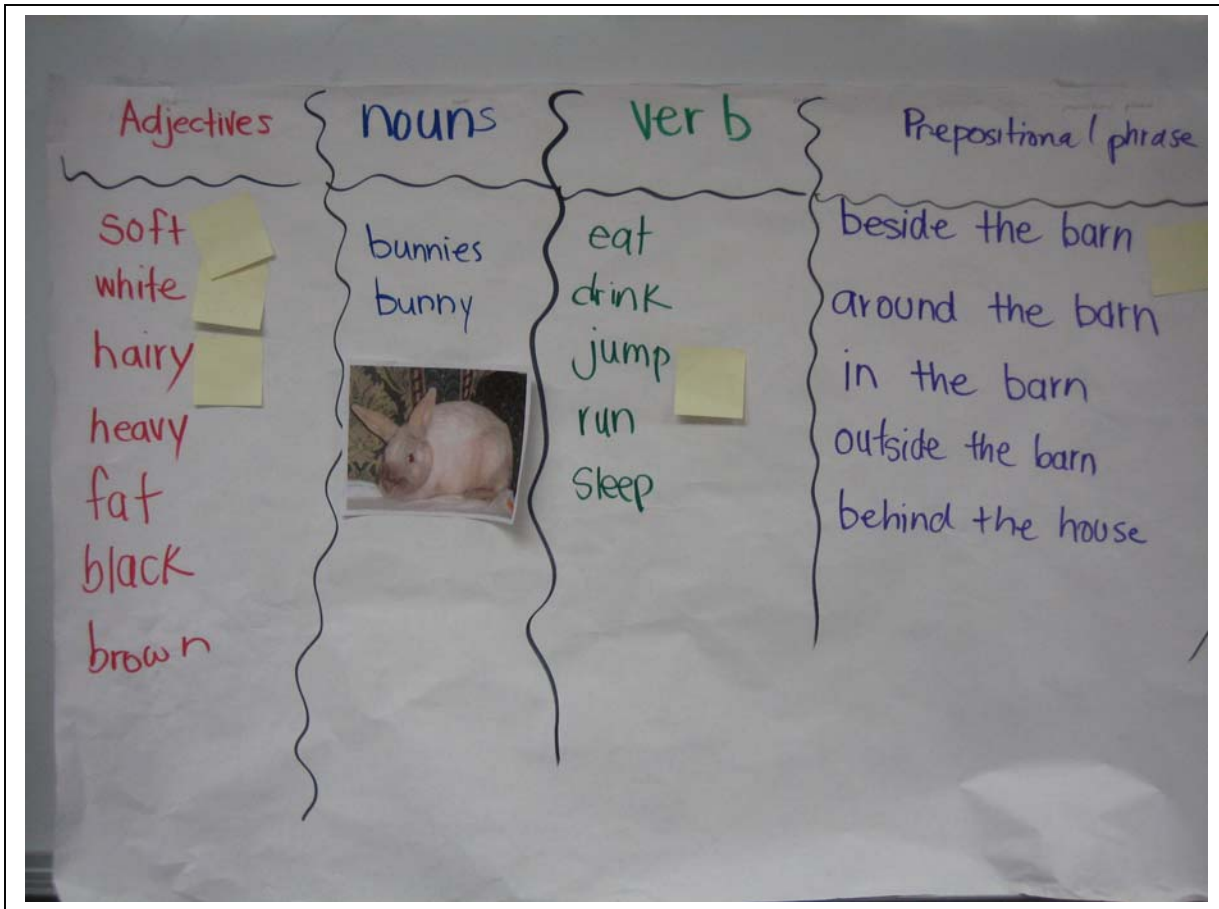 Adjectives
soft
white
hairy
heavy
fat
black
brown
nouns
bunnies
bunny
verb
eat
drink
jump
run
sleep
Prepositional phrase
beside the barn
around the barn
in the barn
outside the barn
behind the house